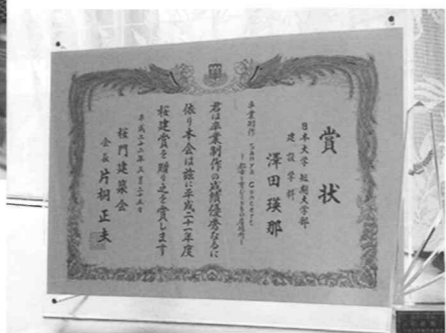 賞状
日本大学 短期大学部
建設学科
澤田瑛那
卒業制作
君は卒業制作の成績優秀なるに
依り本会は茲に平成二十一年度
桜建賞を贈り之を賞します
平成二十二年三月二十五日
桜門建築会
会長 片桐正夫